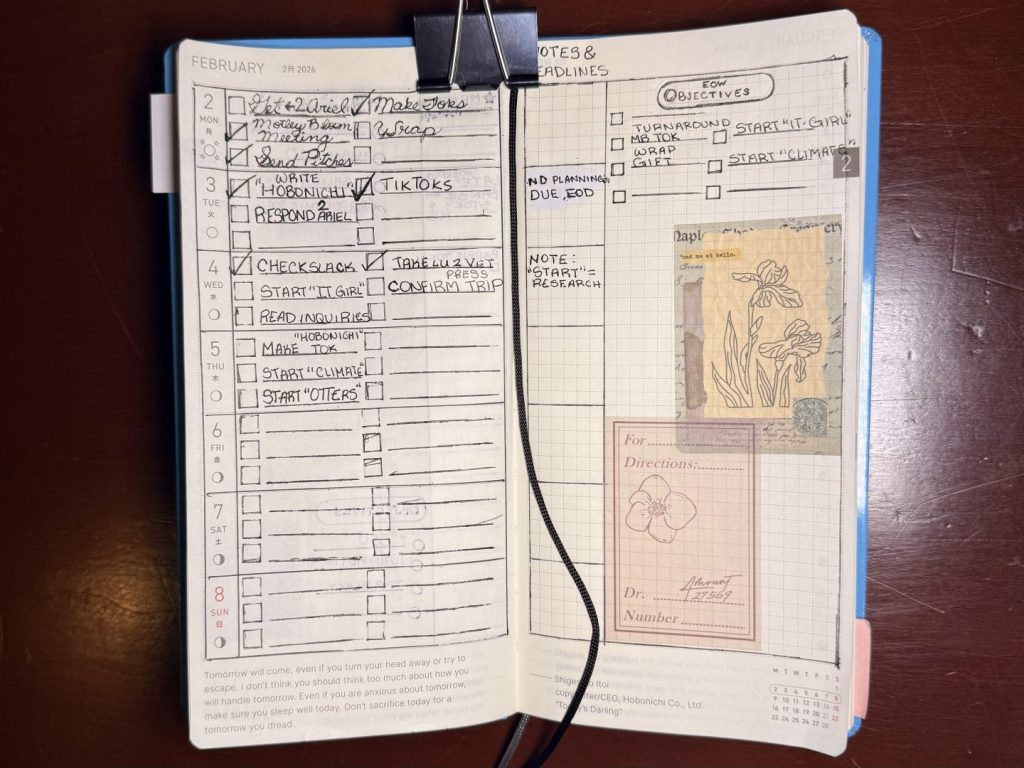 FEBRUARY 2月 2026
2 MON 月
Get +2 Ariel
Make Toks
Motley Bloom
Meeting
Wrap
Send Pitches
3 TUE 火
WRITE
"HOBONICHI"
TIKTOKS
RESPOND ARIEL
2
4 WED 水
CHECK SLACK
TAKE LU 2 VET
START "IT GIRL"
PRESS
CONFIRM TRIP
READ INQUIRIES
5 THU 木
"HOBONICHI"
MAKE TOK
START "CLIMATE"
START "OTTERS"
6 FRI 金
7 SAT 土
8 SUN 日
Tomorrow will come, even if you turn your head away or try to
escape. I don't think you should think too much about how you
will handle tomorrow. Even if you are anxious about tomorrow,
make sure you sleep well today. Don't sacrifice today for a
tomorrow you dread.
NOTES &
DEADLINES
PLANNING
DUE, EOD
NOTE:
"START" =
RESEARCH
EOW
OBJECTIVES
TURNAROUND
MB TOK
WRAP
GIFT
START "IT-GIRL"
START "CLIMATE"
2
me at hello.
For
Directions:
Dr.
Amount
27569
Number
Itoi
copywriter/CEO, Hobonichi Co., Ltd.
"Today's Darling"
M T W T F S S
1
2 3 4 5 6 7 8
9 10 11 12 13 14 15
16 17 18 19 20 21 22
23 24 25 26 27 28